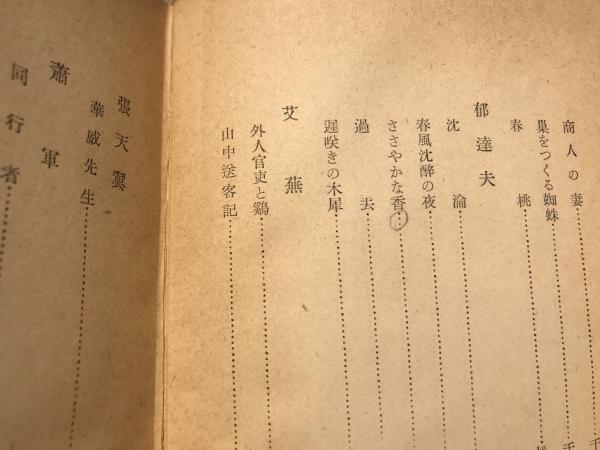 商人の妻
巣をつくる蜘蛛
春桃
郁達夫
沈淪
春風沈醉の夜
ささやかな香
過去
遅咲きの木犀
艾蕪
外人官吏と鶏
山中送客記
張天翼
華威先生
蕭軍
同行者